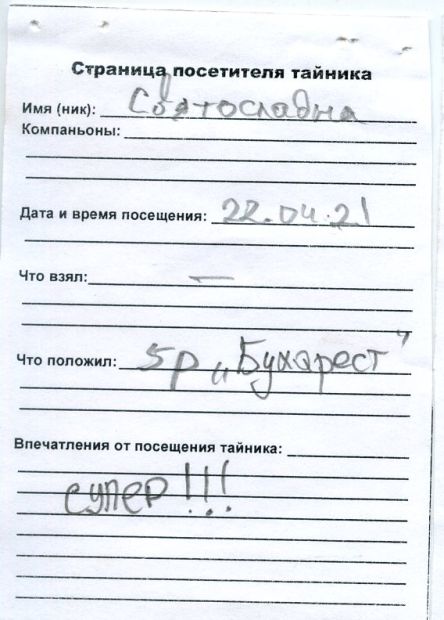 Страница посетителя тайника
Имя (ник): Святославна
Компаньоны:
Дата и время посещения: 22.04.21
Что взял: —
Что положил: 5р „Бухарест"
Впечатления от посещения тайника:
супер!!!